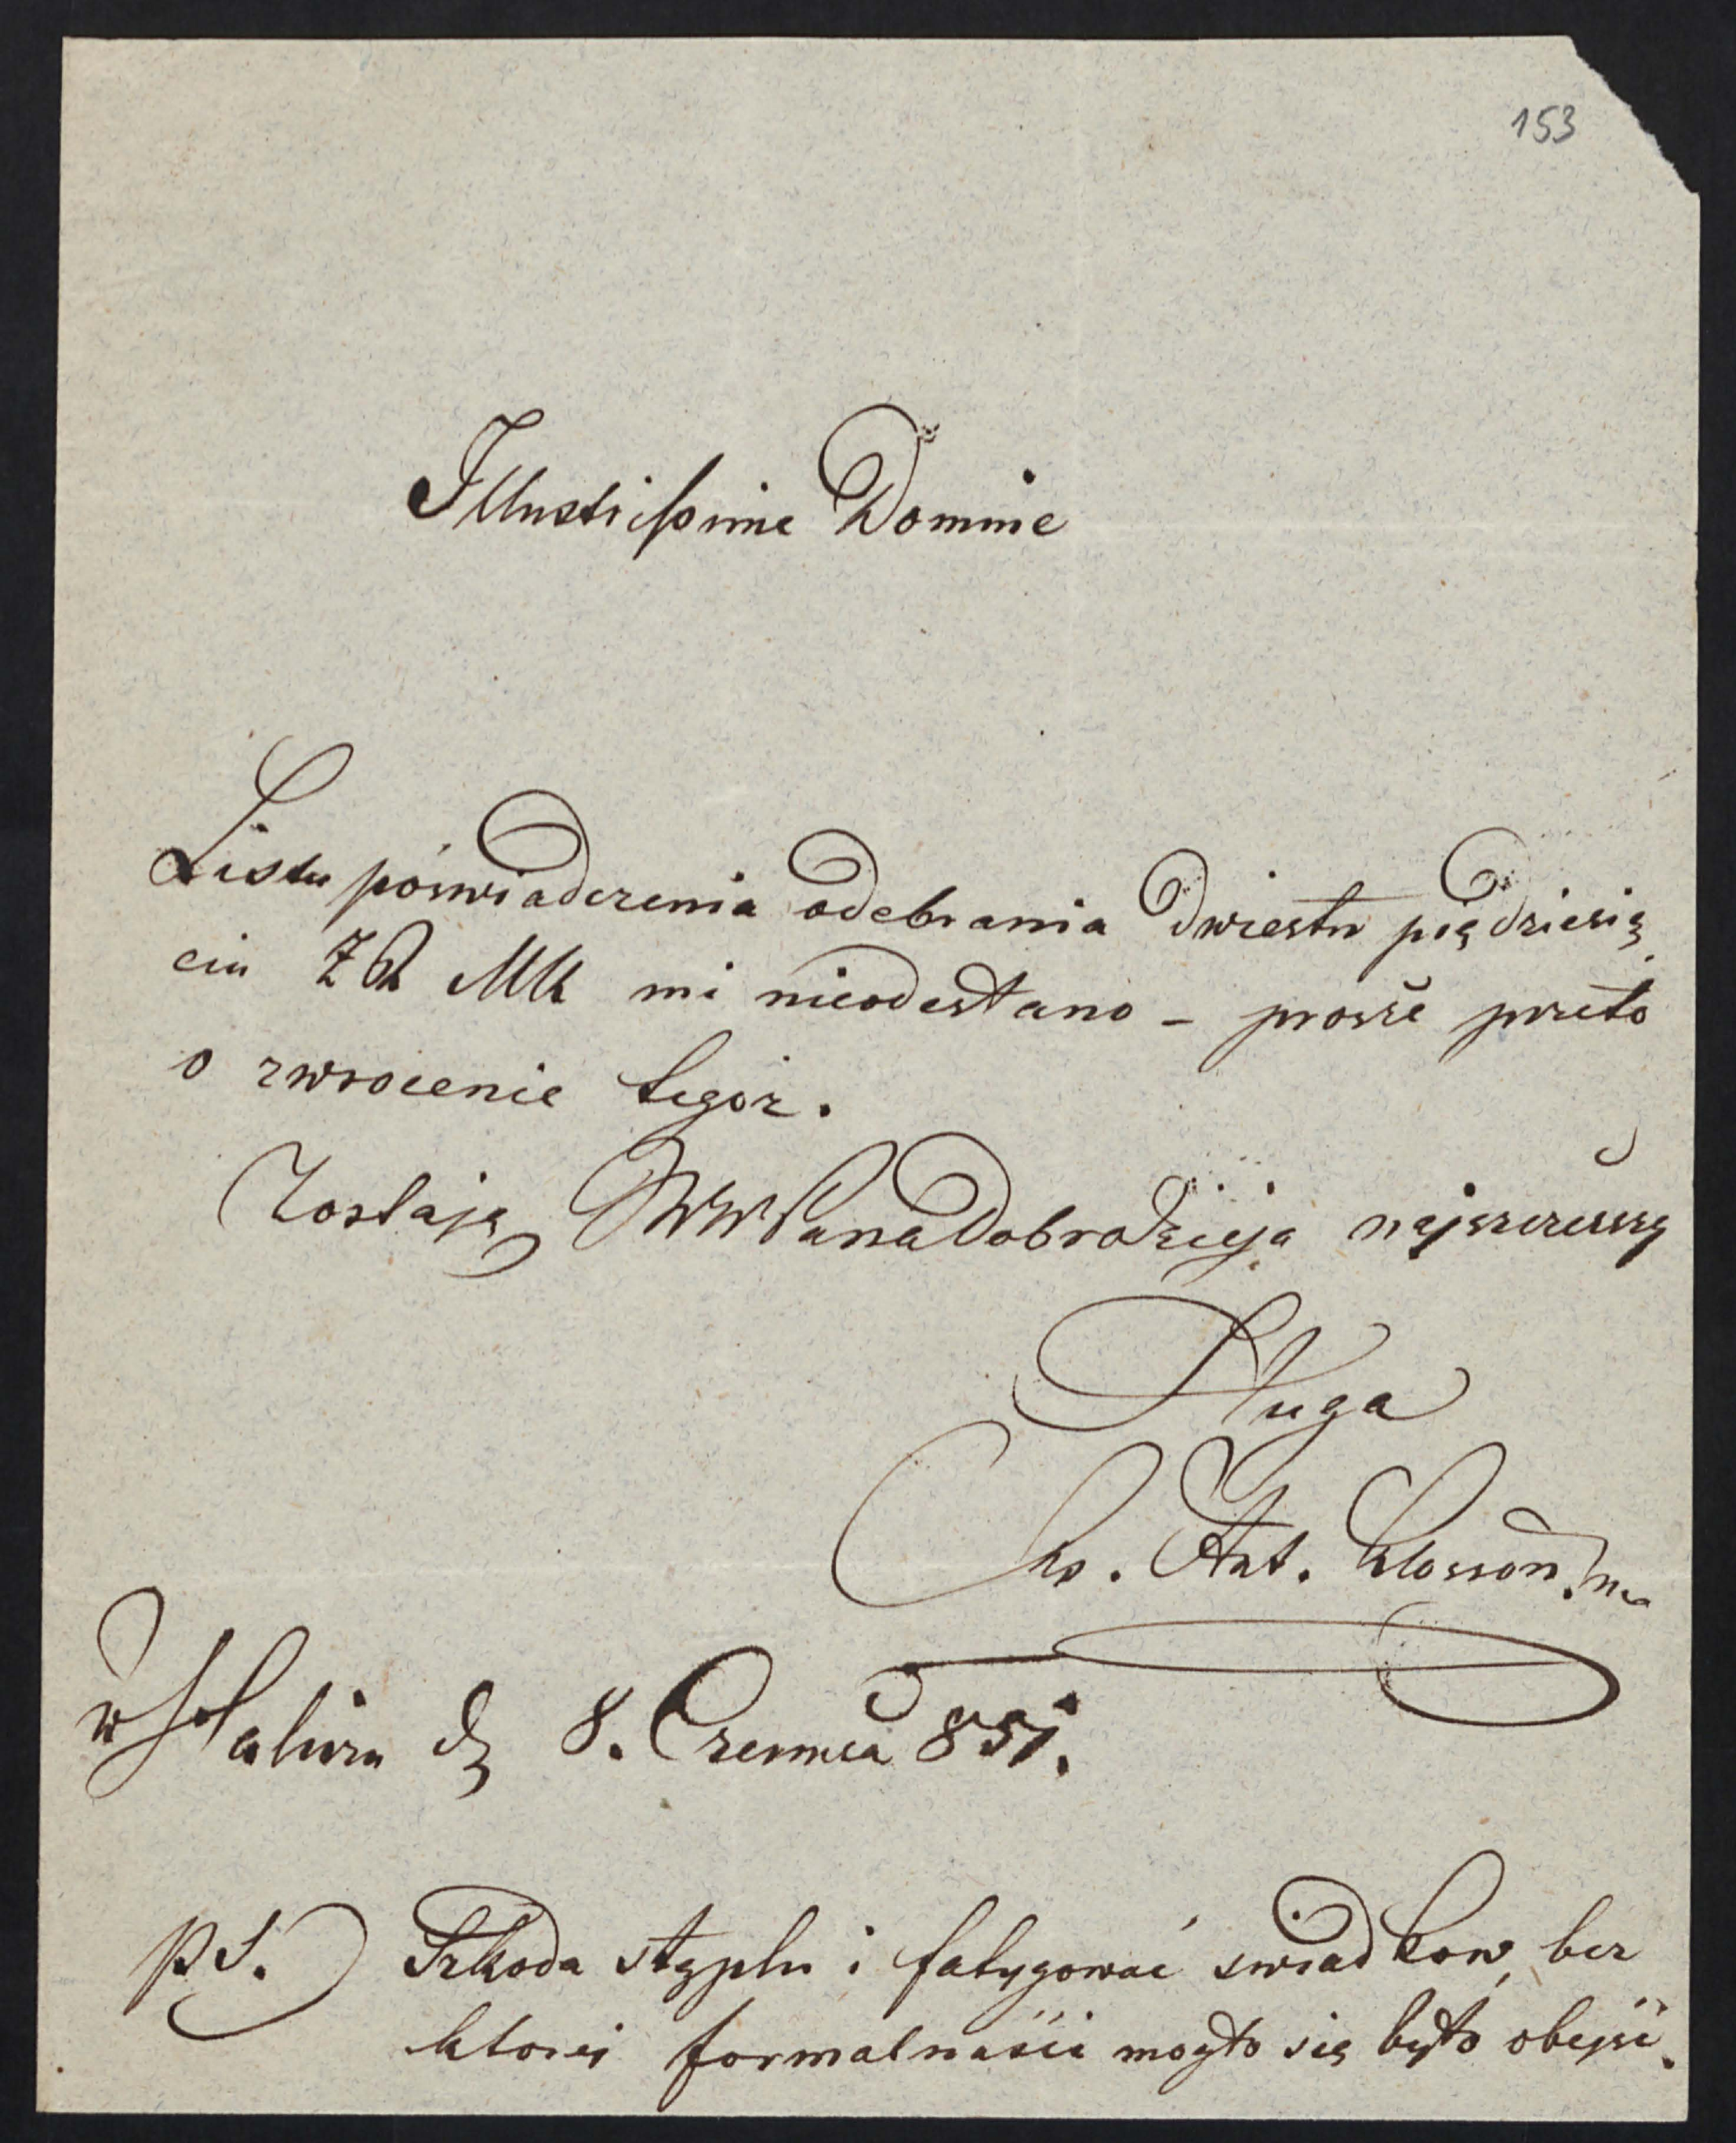 153
Illustrissime Domine
Listu póswiadczenia odebrania dwiestu piędziesię
ciu ZR MK mi nieodesłano – proszę przeto
o zwrocenie tegoż.
Zostaję WW Pana Dobrodzieja najszczerszy
Sługa
Ant.
w Haliczu d 8. Czerwca 851.
PS. Szkoda stęplu i fatygować swiadkow, bez
ktorei formalnaści mogło się było obejsć.